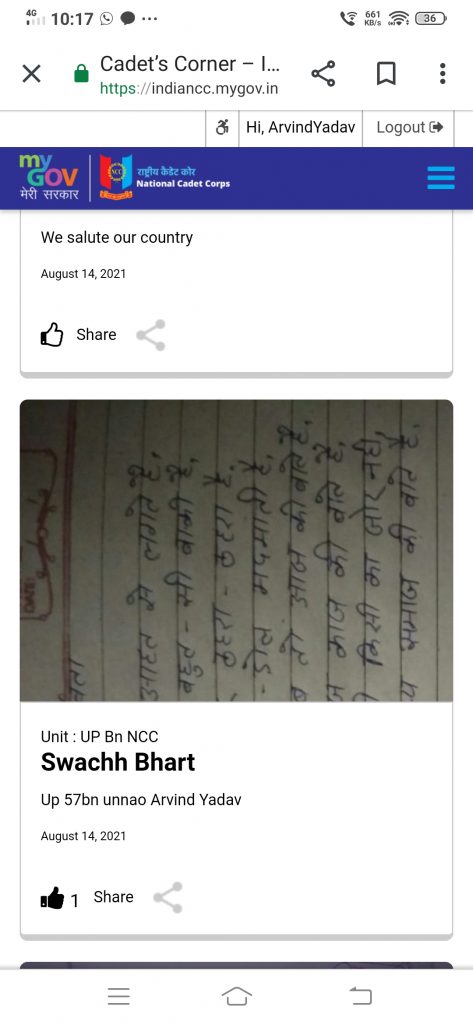 4G 10:17 ...
661
KB/s
36
Cadet's Corner – I...
https://indiancc.mygov.in
Hi, ArvindYadav
Logout
my
GOV
मेरी सरकार
NCC
राष्ट्रीय कैडेट कोर
National Cadet Corps
We salute our country
August 14, 2021
Share
DATE
आदत मे लगते है,
बहुत - सी बाकी है,
ठहरा - ठहरा है,
डोल मदमाती है,
तो आज की बोत है,
काज की बोत है,
किसी का जोर नही,
समाज की बोत है,
Unit : UP Bn NCC
Swachh Bhart
Up 57bn unnao Arvind Yadav
August 14, 2021
1 Share